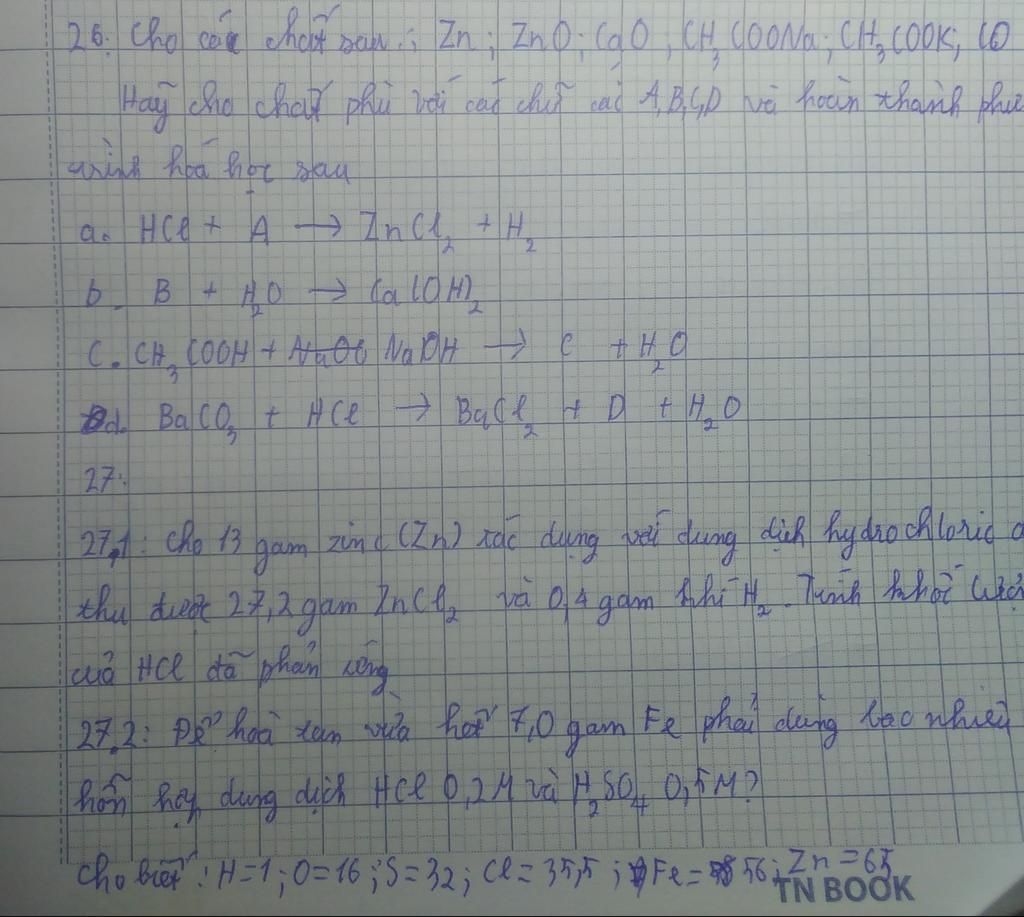 26. Cho các chất sau: Zn; ZnO; CaO; CH3COONa; CH3COOK;
Hãy cho chất phù với các chữ cái A,B,C,D và hoàn thành
trình hoá học sau
a. HCl + A → ZnCl2 + H2
b. B + H2O → Ca(OH)2
C. CH3COOH + NaOH → C + H2O
d. BaCO3 + HCl → BaCl2 + D + H2O
27:
27,1: Cho 13 gam zinc (Zn) tác dụng với dung dịch hydrochloric a
thu được 27,2 gam ZnCl2 và 0,4 gam khí H2. Tính khối
của HCl đã phản ứng
27,2: Để hoà tan vừa hết 7,0 gam Fe phải dùng bao nhiêu
hỗn hợp dung dịch HCl 0,2M và H2SO4 0,5M?
Cho biết: H=1; O=16; S=32; Cl=35,5; Fe=56; Zn=65
TN BOOK